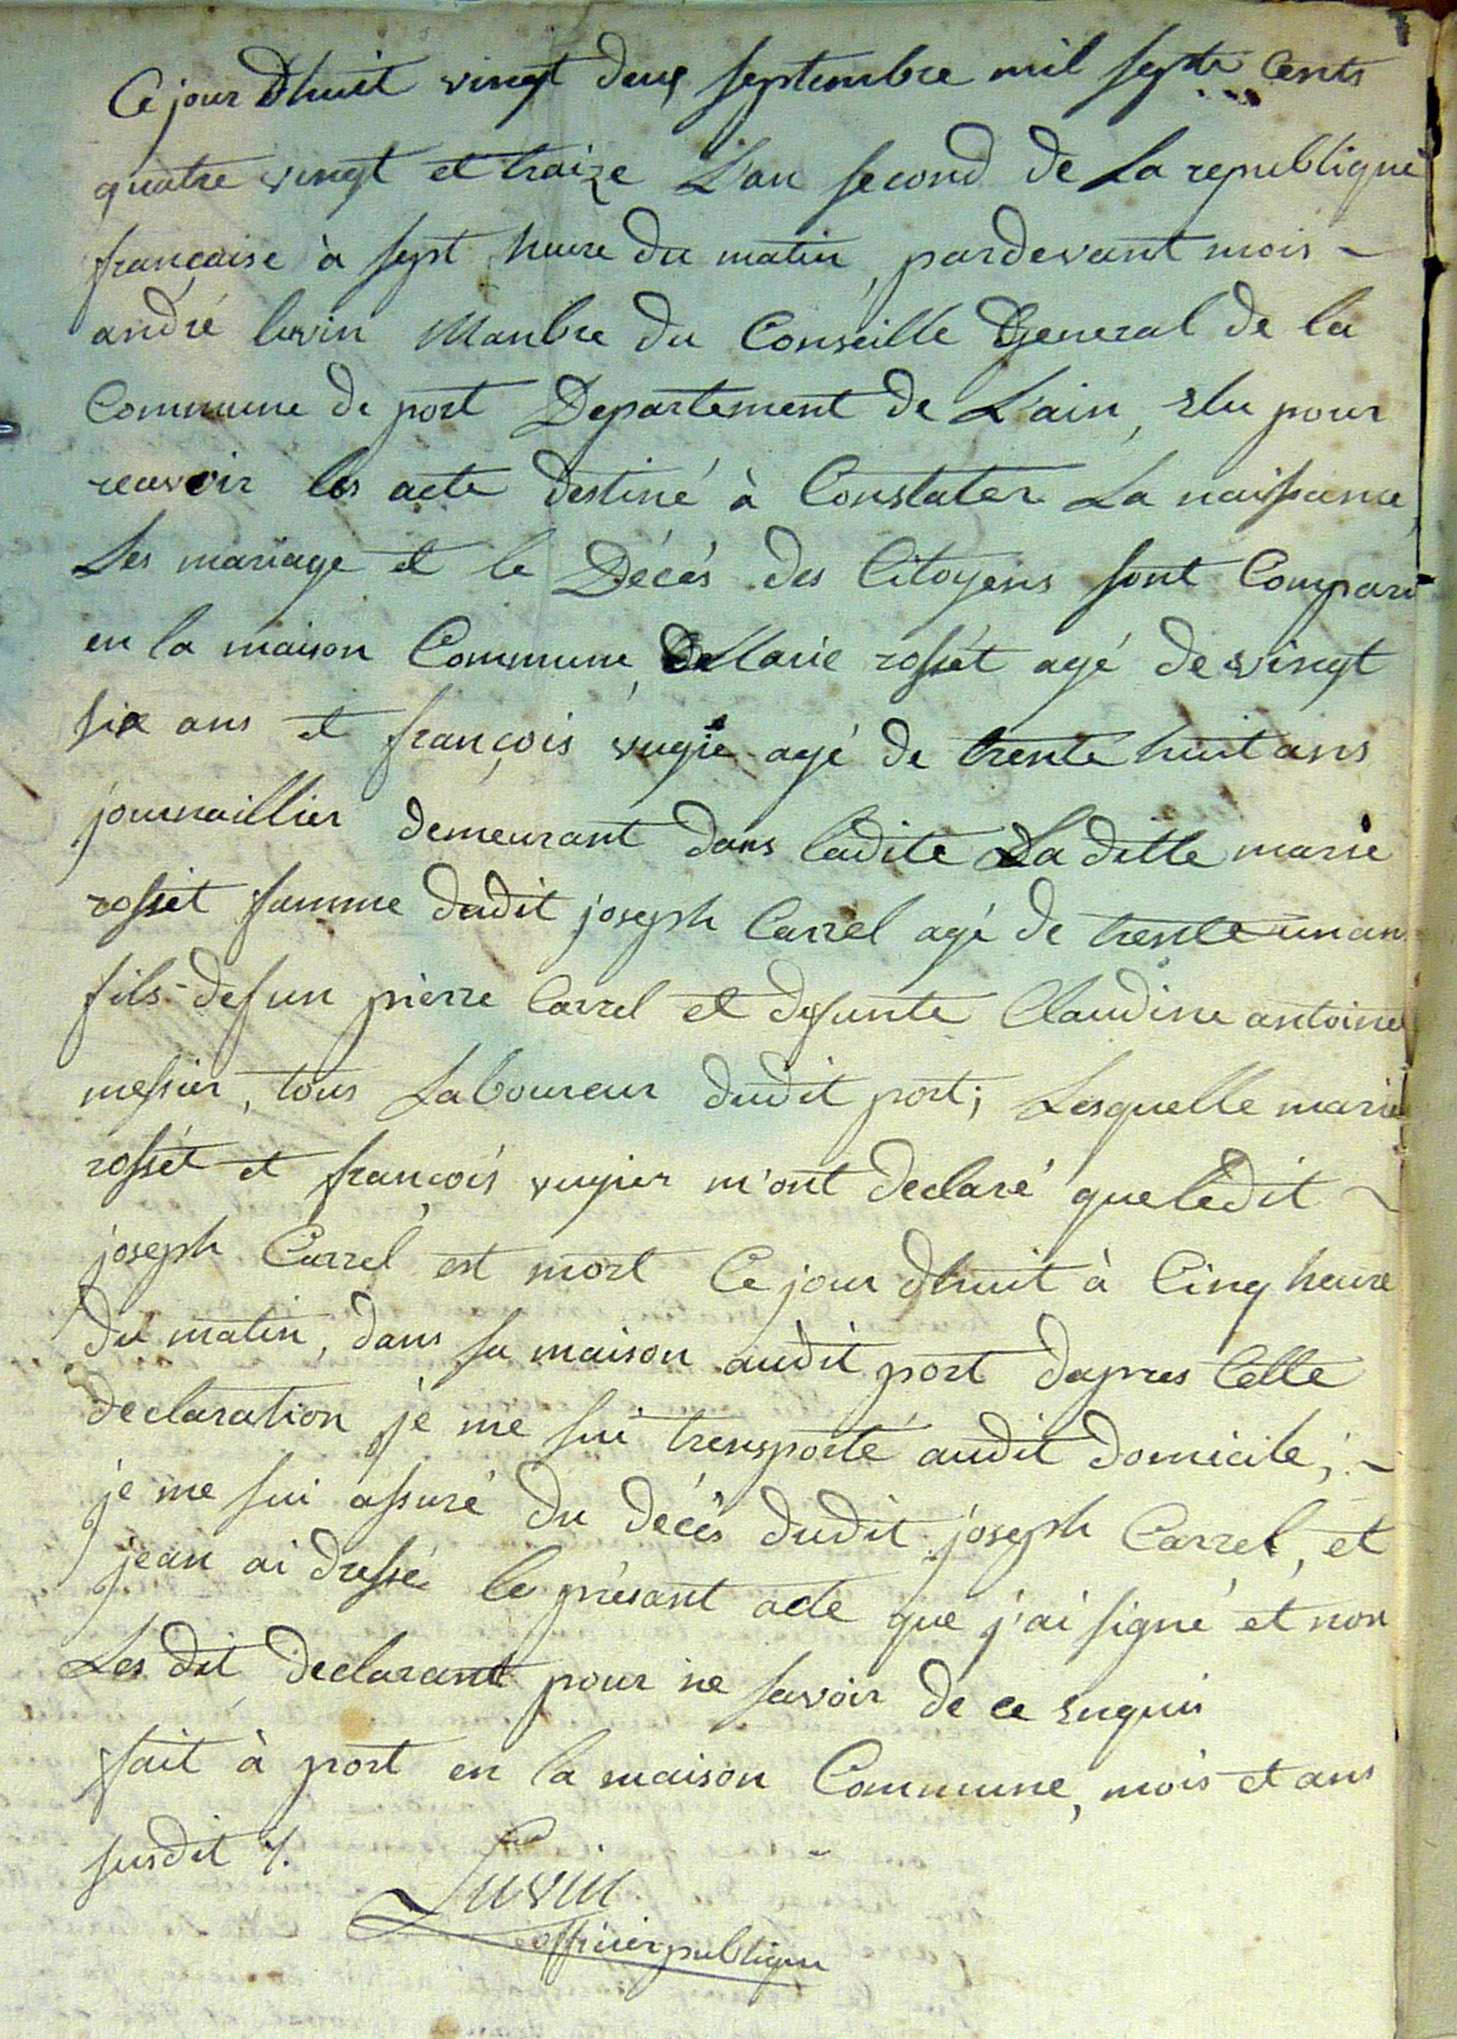 Ce jour Dhuit vingt deux septembre mil septe Cents
quatre vingt et traize L'an second de La republique
francaise à sept heure du matin, pardevant mois -
andré luvin Manbre du Conseille General de la
Commune de port Departement de L'ain, elu pour
reavoir les acte destiné à Constater La naissance,
Les mariage et le Décés des Citoyens sont Comparu
en la maison Commune, Marie rossét agé de vingt
six ans et françois vugie agé de trente huit ans
journaillier demeurant dans ladite La ditte marie
rossét famme dudit joseph Carrel agé de trente un an
fils defun pierre Carrel et defunte Claudine antoine
messier, tous Laboureur dudit port; Lesquelle marie
rossét et françois vugier m'ont declaré que ledit ~
joseph Carrel est mort Ce jour dhuit à Cinq heure
du matin, dans sa maison audit port dapres Cette
declaration je me sui transporté audit domicile; -
je me sui assuré du décés dudit joseph Carrel, et
jean ai dressé le présant acte que j'ai signé et non
Les dit declarant pour ne savoir de ce enquis
fait à port en la maison Commune, mois et ans
susdit /.
Luvin
officier publique